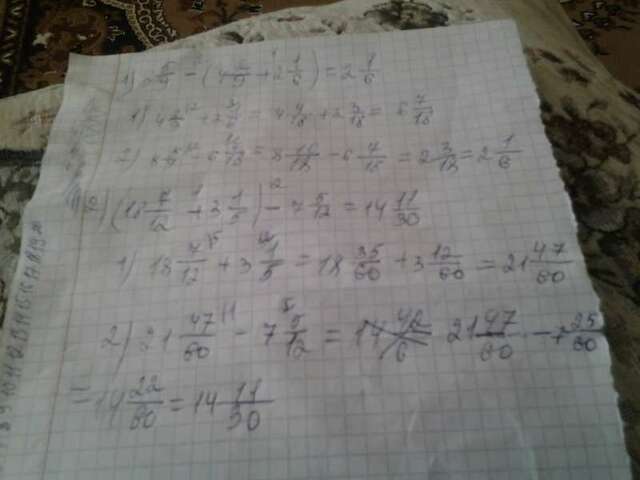 1) 8 5/9 - (4 2/9 + 2 1/6) = 2 1/6
1) 4 2/9 + 2 1/6 = 4 4/18 + 2 3/18 = 6 7/18
2) 8 5/9 - 6 7/18 = 8 10/18 - 6 7/18 = 2 3/18 = 2 1/6
2) (18 7/12 + 3 1/5) - 7 5/12 = 14 11/30
1) 18 7/12 + 3 1/5 = 18 35/60 + 3 12/60 = 21 47/60
2) 21 47/60 - 7 5/12 = 21 47/60 - 7 25/60
= 14 22/60 = 14 11/30